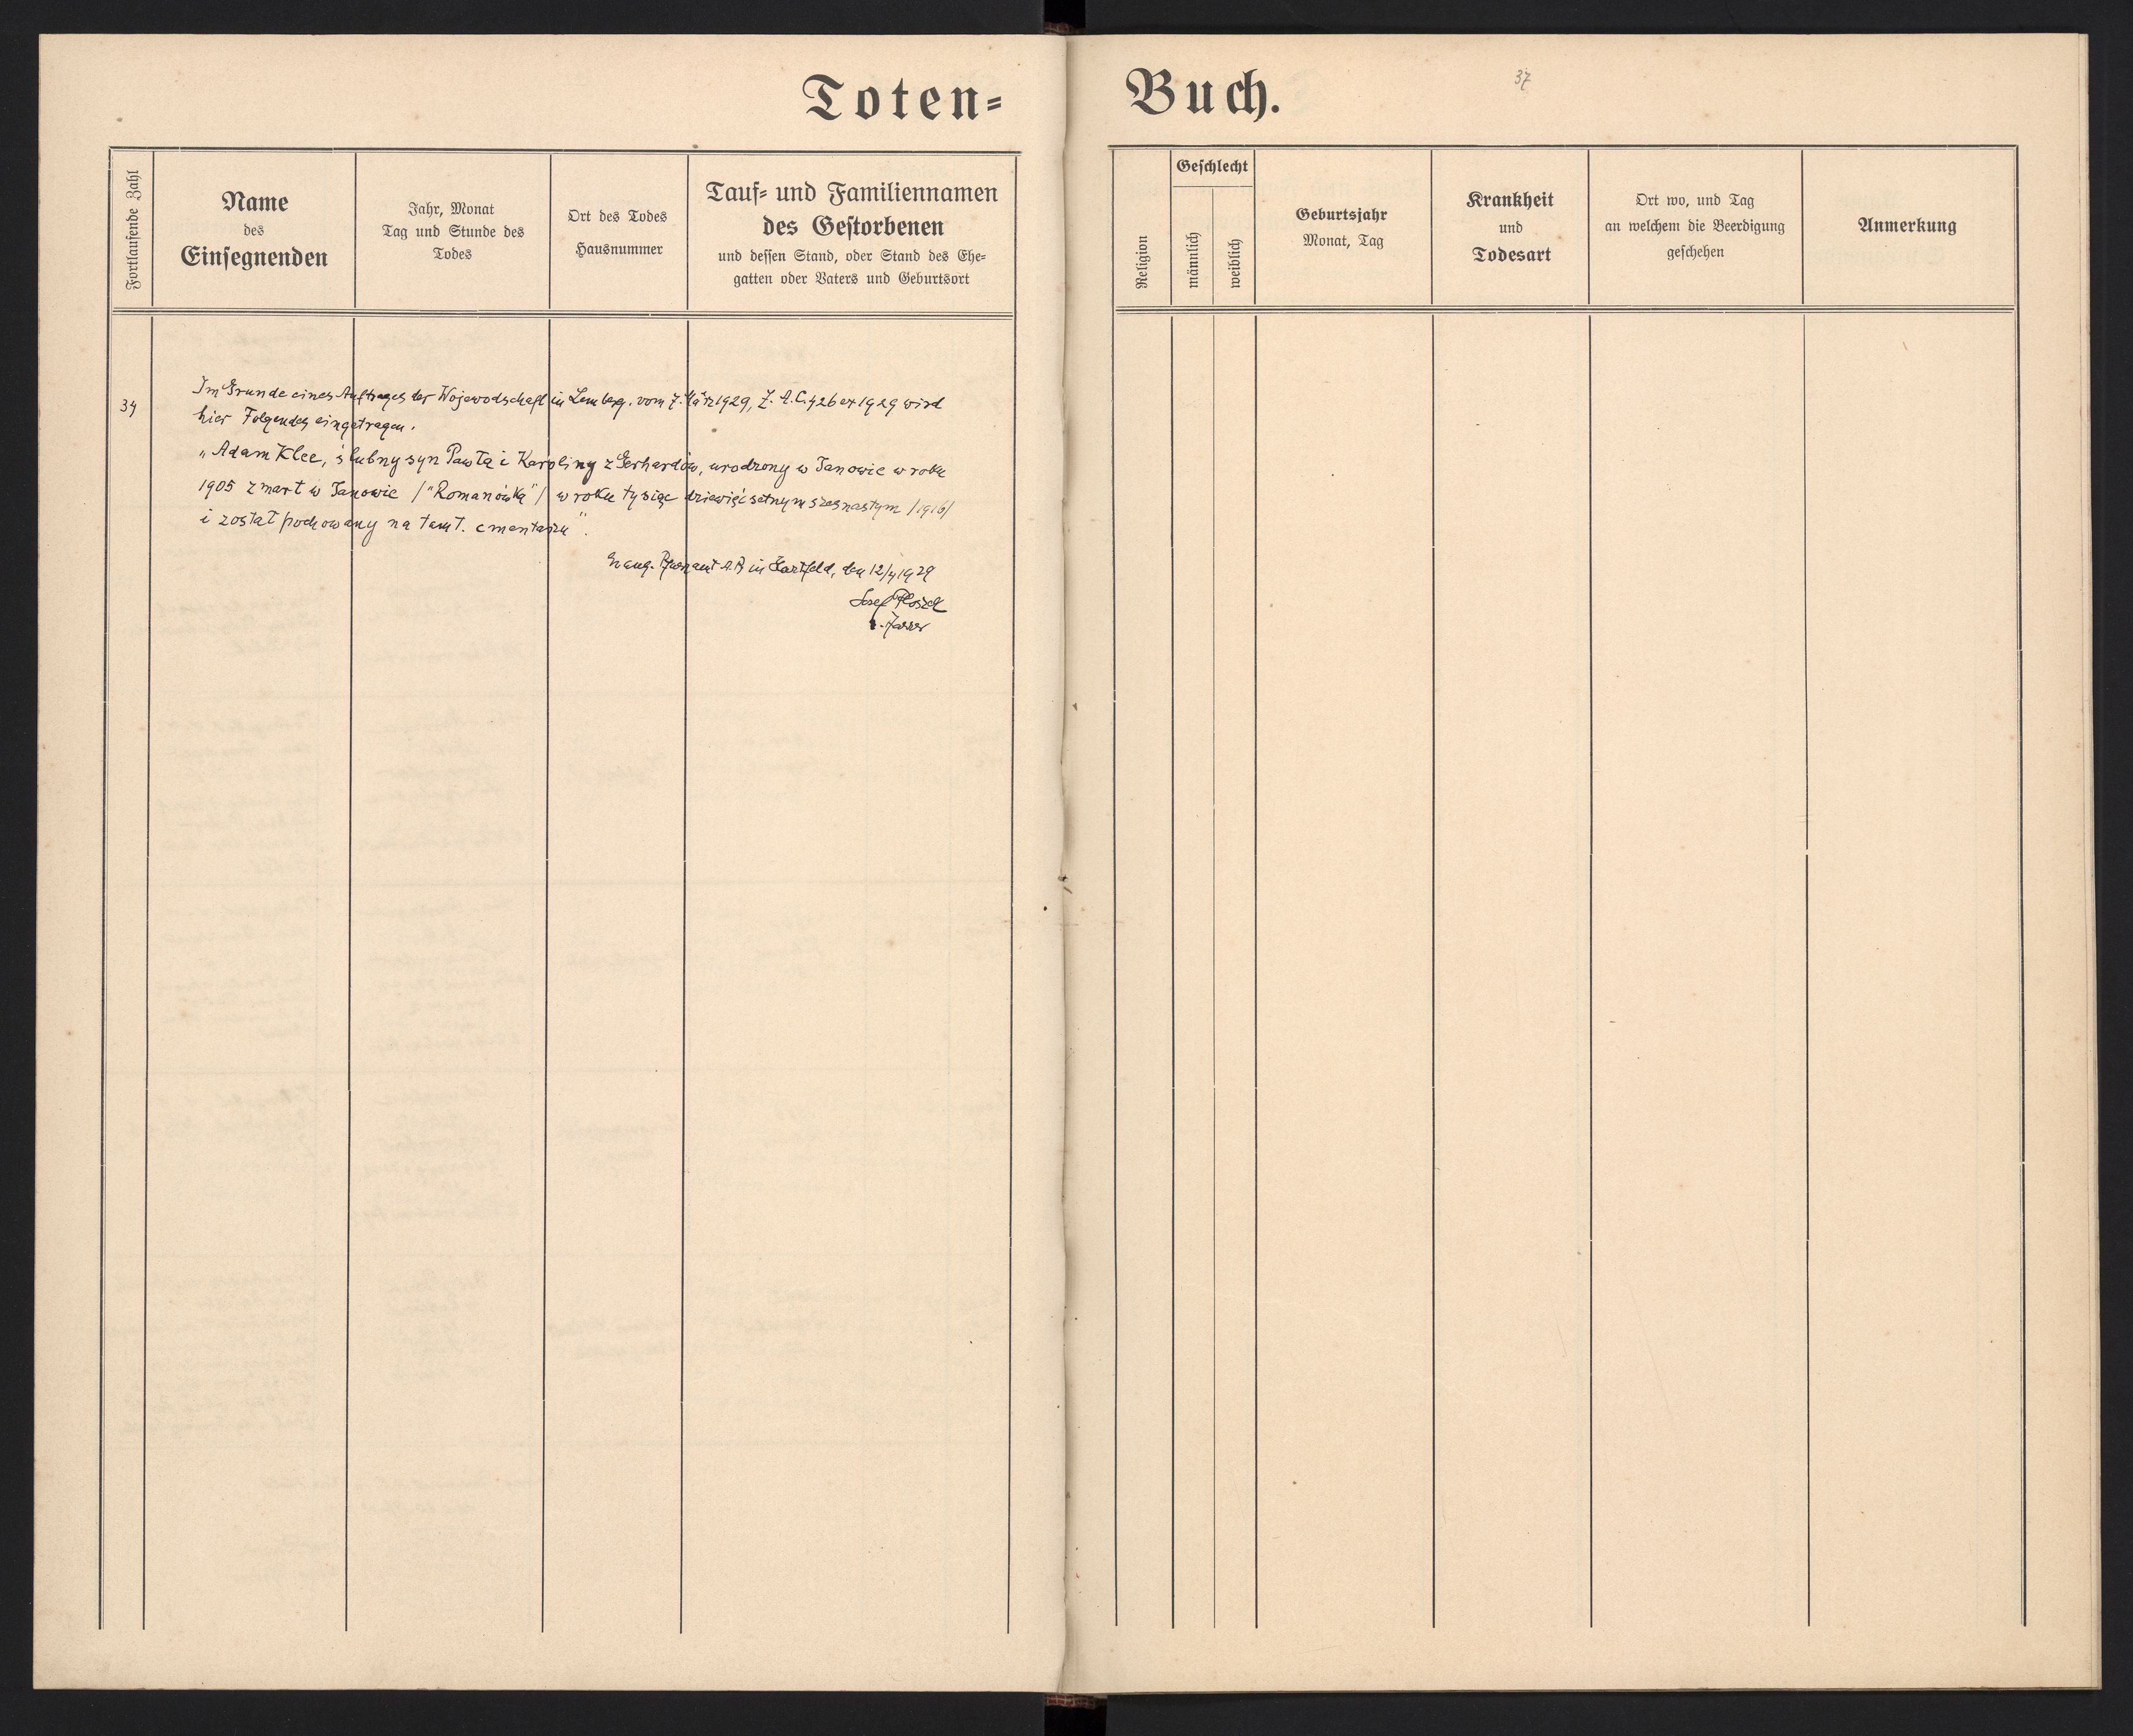 Toten=
Buch.
37
Fortlaufende Zahl
Name
des
Einsegnenden
Jahr, Monat
Tag und Stunde des
Todes
Ort des Todes
Hausnummer
Tauf= und Familiennamen
des Gestorbenen
und dessen Stand, oder Stand des Ehe=
gatten oder Vaters und Geburtsort
Religion
Geschlecht
männlich
weiblich
Geburtsjahr
Monat, Tag
Krankheit
und
Todesart
Ort wo, und Tag
an welchem die Beerdigung
geschehen
Anmerkung
34
Im Grunde eines Auftrages der Wojewodschaft in Lemberg. vom 7. März 1929, Z. A.C. 426 ex 1929 wird
hier Folgendes eingetragen.
„Adam Klee, ślubny syn Pawła i Karoliny z Gerhardów, urodzony w Janowie w roku
1905 zmarł w Janowie /"Romanówka"/ w roku tysiąc dziewięćsetnym szesnastym /1916/
i został pochowany na tamt. cmentarzu".
Evang. Pfarramt A.B in Hartfeld, den 12/4 1929
Josef Ploszek
Pfarrer